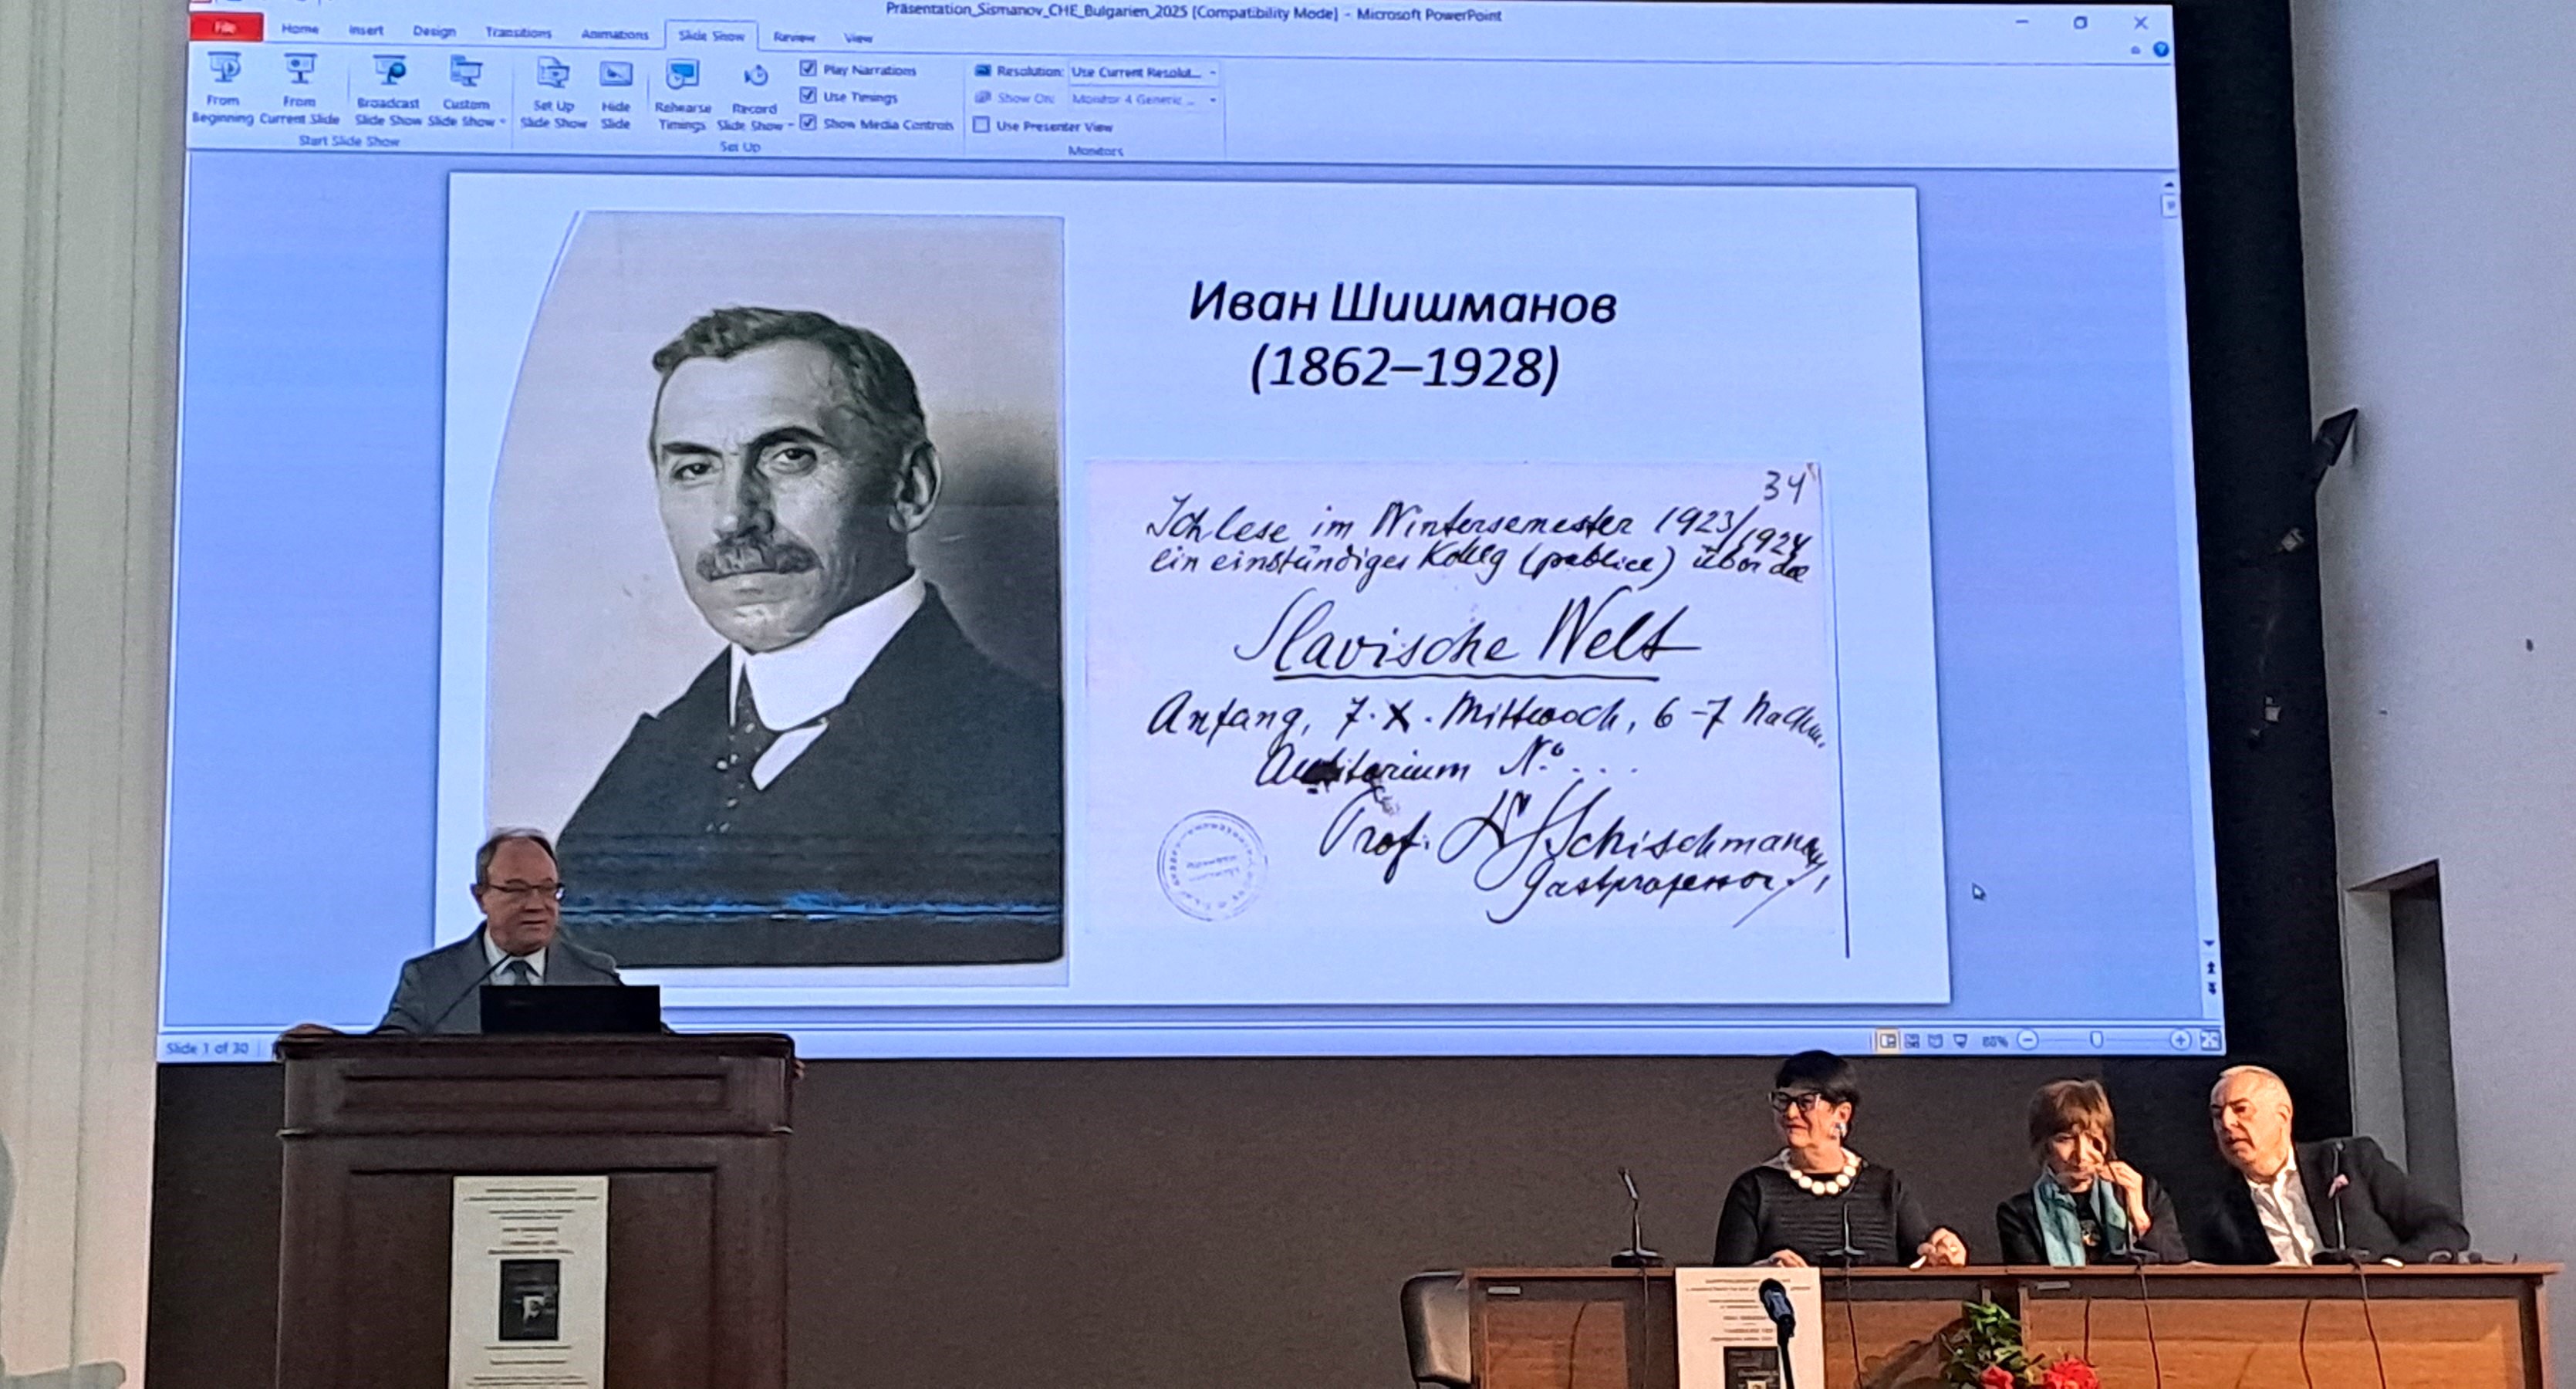 Präsentation_Sismanov_CHE_Bulgarien_2025 [Compatibility Mode] - Microsoft PowerPoint
File Home Insert Design Transitions Animations Slide Show Review View
From Beginning
From Current Slide
Broadcast Slide Show
Custom Slide Show
Set Up Slide Show
Hide Slide
Rehearse Timings
Record Slide Show
Play Narrations
Use Timings
Show Media Controls
Resolution: Use Current Resolut...
Show On: Monitor 4 Generic ...
Use Presenter View
Start Slide Show
Set Up
Monitors
Иван Шишманов
(1862–1928)
34
Ich lese im Wintersemester 1923/1924
ein einstündiges Kolleg (publice) über die
Slavische Welt
Anfang, 7. X. Mittwoch, 6-7 Nachm.
Auditorium No. ...
Prof. Schischmanov
Gastprofessor.
Slide 1 of 30
80%